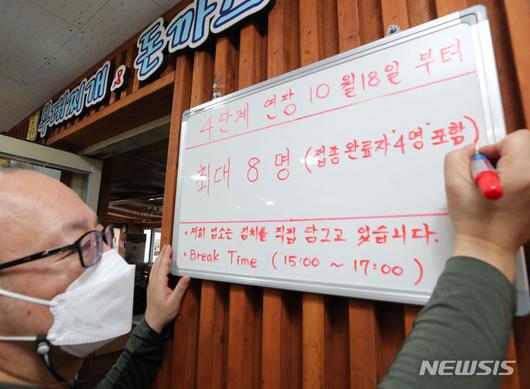 부대찌개 & 돈까스
4단계 연장 10월 18일 부터
최대 8명 (접종완료자 "4명" 포함)
• 저희 업소는 김치를 직접 담그고 있습니다.
• Break Time (15:00 ~ 17:00)
NEWSIS